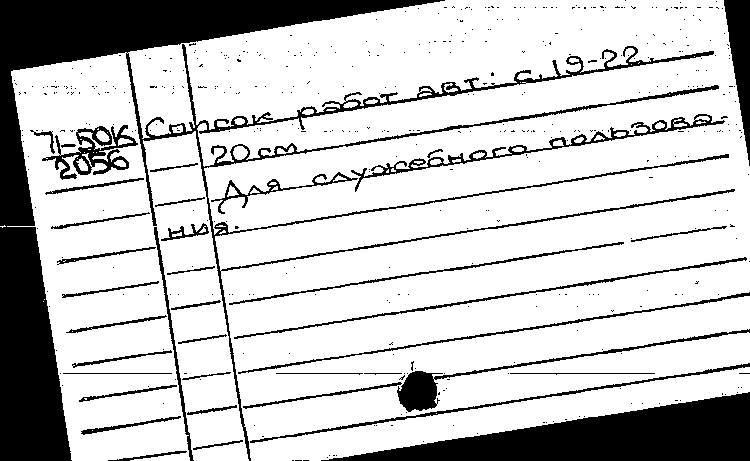 Список работ авт.: с. 19-22.
П-50К
2056
20 см.
Для служебного пользова-
ния.